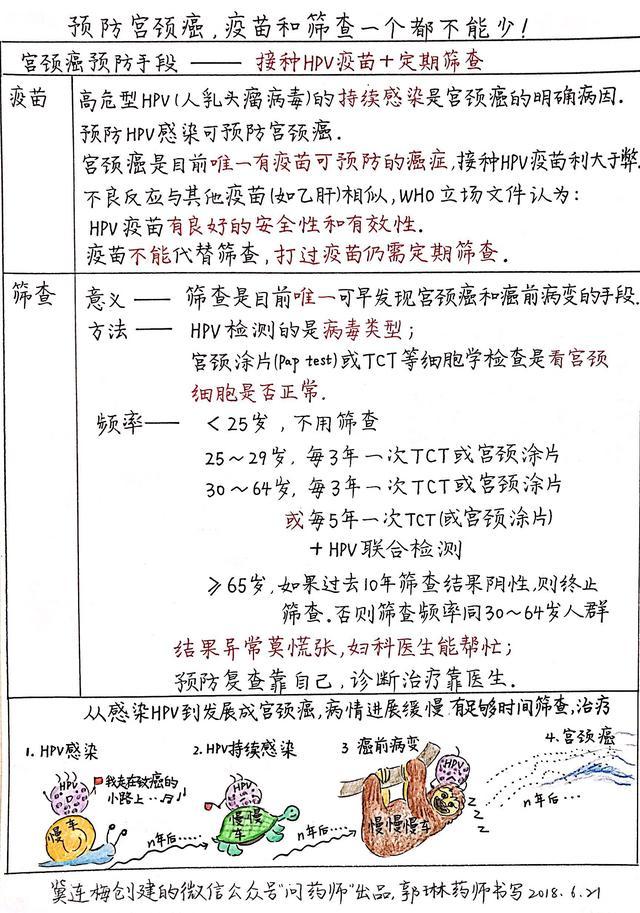 预防宫颈癌,疫苗和筛查一个都不能少!
宫颈癌预防手段 —— 接种HPV疫苗+定期筛查
疫苗
高危型HPV(人乳头瘤病毒)的持续感染是宫颈癌的明确病因.
预防HPV感染可预防宫颈癌.
宫颈癌是目前唯一有疫苗可预防的癌症,接种HPV疫苗利大于弊.
不良反应与其他疫苗(如乙肝)相似,WHO立场文件认为:
HPV疫苗有良好的安全性和有效性.
疫苗不能代替筛查,打过疫苗仍需定期筛查.
筛查
意义 —— 筛查是目前唯一可早发现宫颈癌和癌前病变的手段.
方法 —— HPV检测的是病毒类型;
宫颈涂片(Pap test)或TCT等细胞学检查是看宫颈
细胞是否正常.
频率—— <25岁,不用筛查
25~29岁,每3年一次TCT或宫颈涂片
30~64岁,每3年一次TCT或宫颈涂片
或每5年一次TCT(或宫颈涂片)
+HPV联合检测
≥65岁,如果过去10年筛查结果阴性,则终止
筛查.否则筛查频率同30~64岁人群
结果异常莫慌张,妇科医生能帮忙;
预防复查靠自己,诊断治疗靠医生.
从感染HPV到发展成宫颈癌,病情进展缓慢.有足够时间筛查,治疗
1.HPV感染
2.HPV持续感染
3 癌前病变
4.宫颈癌
HPV
我走在致癌的
小路上…
慢车
n年后…
HPV
慢慢车
n年后…
HPV
慢慢慢车
z z z
n年后…
冀连梅创建的微信公众号"问药师"出品,郭琳药师书写2018.6.21